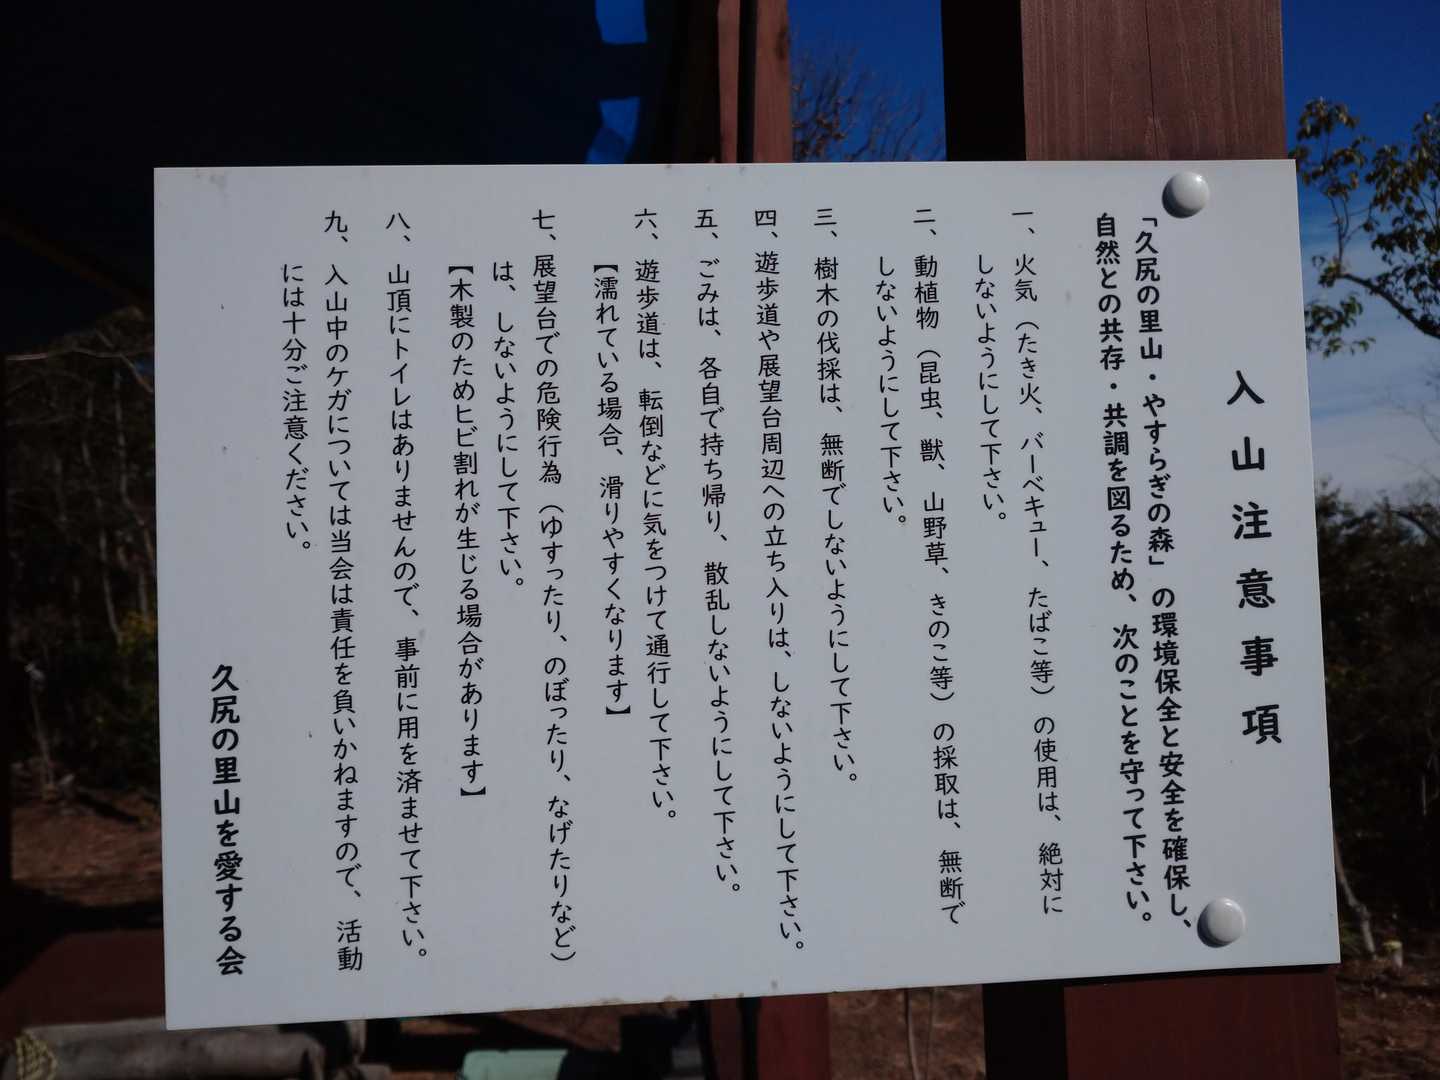 入山注意事項
「久尻の里山・やすらぎの森」の環境保全と安全を確保し、
自然との共存・共調を図るため、次のことを守って下さい。
一、火気（たき火、バーベキュー、たばこ等）の使用は、絶対に
しないようにして下さい。
二、動植物（昆虫、獣、山野草、きのこ等）の採取は、無断で
しないようにして下さい。
三、樹木の伐採は、無断でしないようにして下さい。
四、遊歩道や展望台周辺への立ち入りは、しないようにして下さい。
五、ごみは、各自で持ち帰り、散乱しないようにして下さい。
六、遊歩道は、転倒などに気をつけて通行して下さい。
【濡れている場合、滑りやすくなります】
七、展望台での危険行為（ゆすったり、のぼったり、なげたりなど）
は、しないようにして下さい。
【木製のためヒビ割れが生じる場合があります】
八、山頂にトイレはありませんので、事前に用を済ませて下さい。
九、入山中のケガについては当会は責任を負いかねますので、活動
には十分ご注意ください。
久尻の里山を愛する会